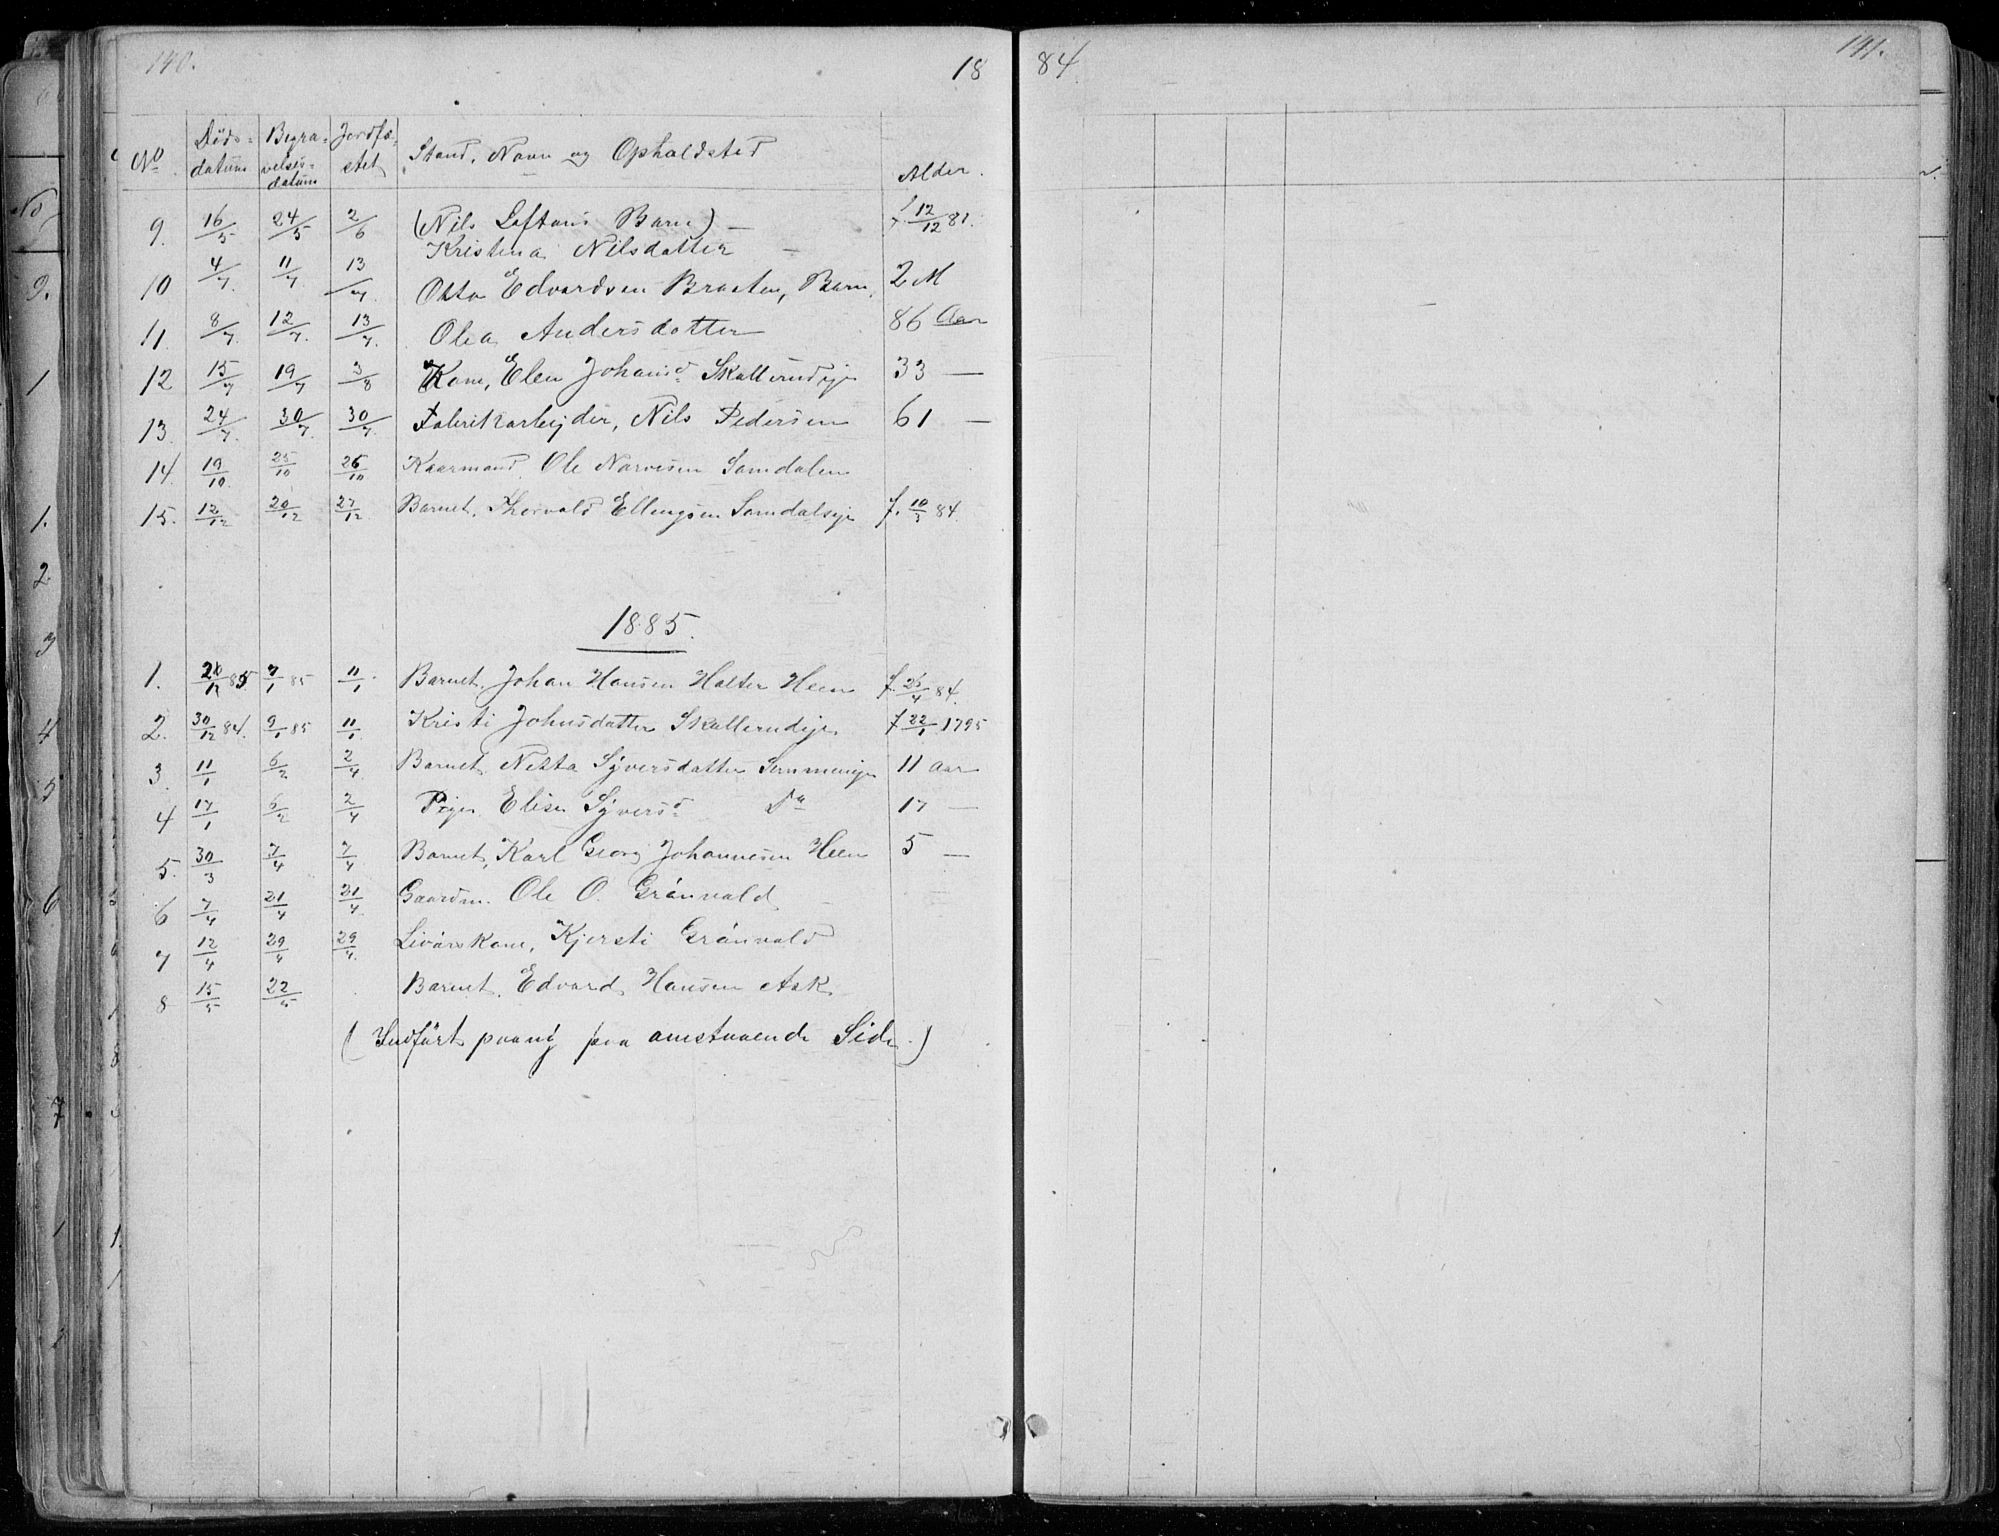 140.
18
84
141.
No Døds-datum Begra-velses-datum Jordfæ-stet Stand, Navn og Opholdsted Alder.
9. 16/5 24/5 2/6 (Nils Loftons Barn) — f. 12/12 81.
Kristina Nilsdatter —
10 4/7. 11/7. 13/7. Otto Edvardsen Braaten, Barn, 2 M
11. 8/7. 12/7. 13/7. Olea Andersdatter 86 Aar
12 15/7 19/7 3/8 Kone, Elen Johansd. Skallerudeje 33 —
13. 24/7. 30/7. 30/7. Fabrikarbejder, Nils Pedersen 61 —
14. 19/10. 25/10 26/10 Kaarmand Ole Narvesen Samdalen
15. 12/12 20/12 27/12. Barnet, Thorvald Ellingsen Samdalseje f. 10/3 84.
1885.
1. 28/12 85 7/1 85 11/1. Barnet, Johan Hansen Halter Heen f. 26/4 84.
2. 30/12 84. 9/1 85 11/1. Kristi Johnsdatter Skallerudeje. f 22/1 1795
3. 11/1 6/2 2/4. Barnet, Netta Syversdatter Semmeneje 11 aar
4 17/1 6/2 2/4 Pige Elise Syversd. Do 17 —
5. 30/3 7/4 7/4 Barnet, Karl Georg Johannesen Heen 5 —
6 7/4 21/4 21/4. Gaardm. Ole O. Grönvold
7 12/4 29/4 29/4. Livörskone, Kjersti Grönvold
8 15/5 22/5 Barnet, Edvard Hansen Ask
(Indfört paany paa omstaaende Side.)